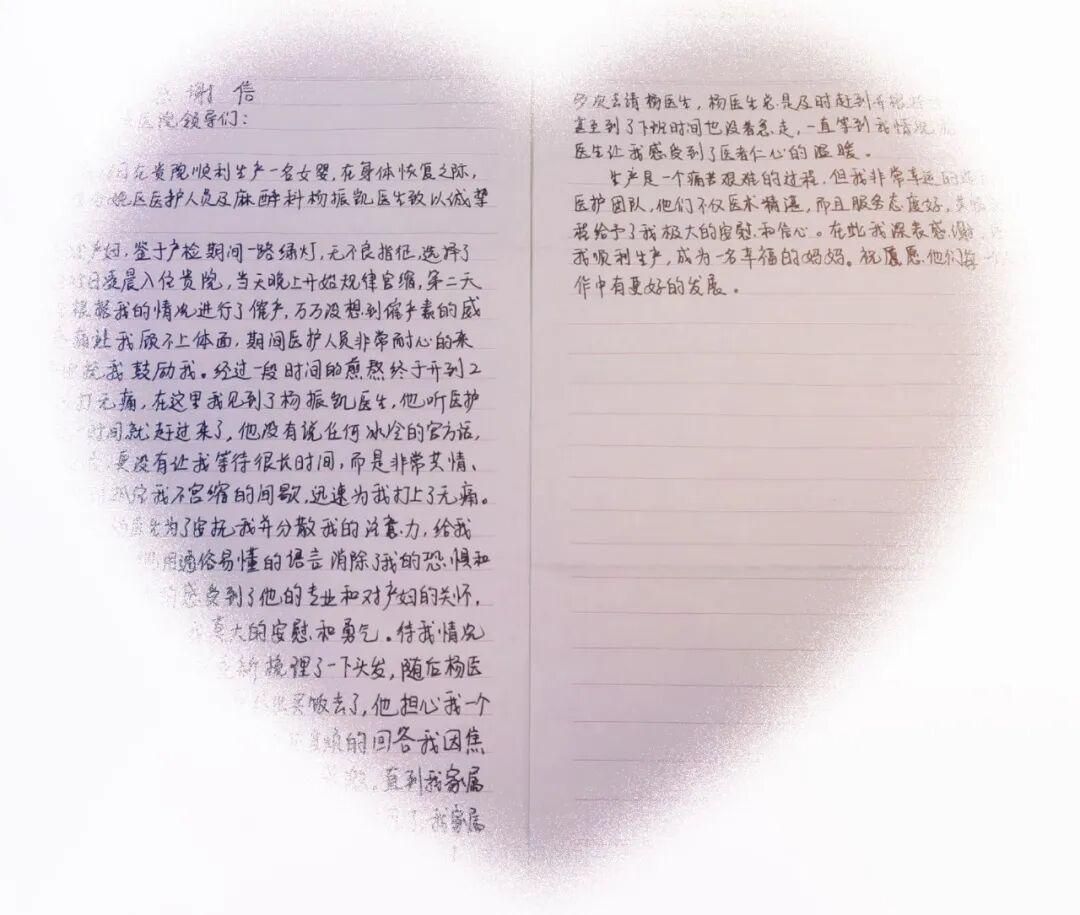 谢信
医院领导们：
日在贵院顺利生产一名女婴，在身体恢复之际，
医护人员及麻醉科杨振凯医生致以诚挚
产妇，鉴于产检期间一路绿灯，无不良指征，选择了
日凌晨入住贵院，当天晚上开始规律宫缩，第二天
根据我的情况进行了催产，万万没想到催产素的威
痛让我顾不上体面，期间医护人员非常耐心的来
我鼓励我。经过一段时间的煎熬终于开到2
打无痛，在这里我见到了杨振凯医生，他听医护
时间就赶过来了，他没有说任何冰冷的官方话，
更没有让我等待很长时间，而是非常共情、
我不宫缩的间歇，迅速为我打上了无痛。
为了安抚我并分散我的注意力，给我
用通俗易懂的语言消除了我的恐惧和
感受到了他的专业和对产妇的关怀，
莫大的安慰和勇气。待我情况
新梳理了一下头发，随后杨医
买饭去了，他担心我一个
烦的回答我因焦
直到我家属
我家属
多次去请杨医生，杨医生总是及时赶到并根
甚至到了下班时间也没着急走，一直等到我情况
医生让我感受到了医者仁心的温暖。
生产是一个痛苦艰难的过程，但我非常幸运的
医护团队，他们不仅医术精湛，而且服务态度好，
程给予了我极大的安慰和信心。在此我深表感谢，
我顺利生产，成为一名幸福的妈妈。祝愿他们每一
作中有更好的发展。